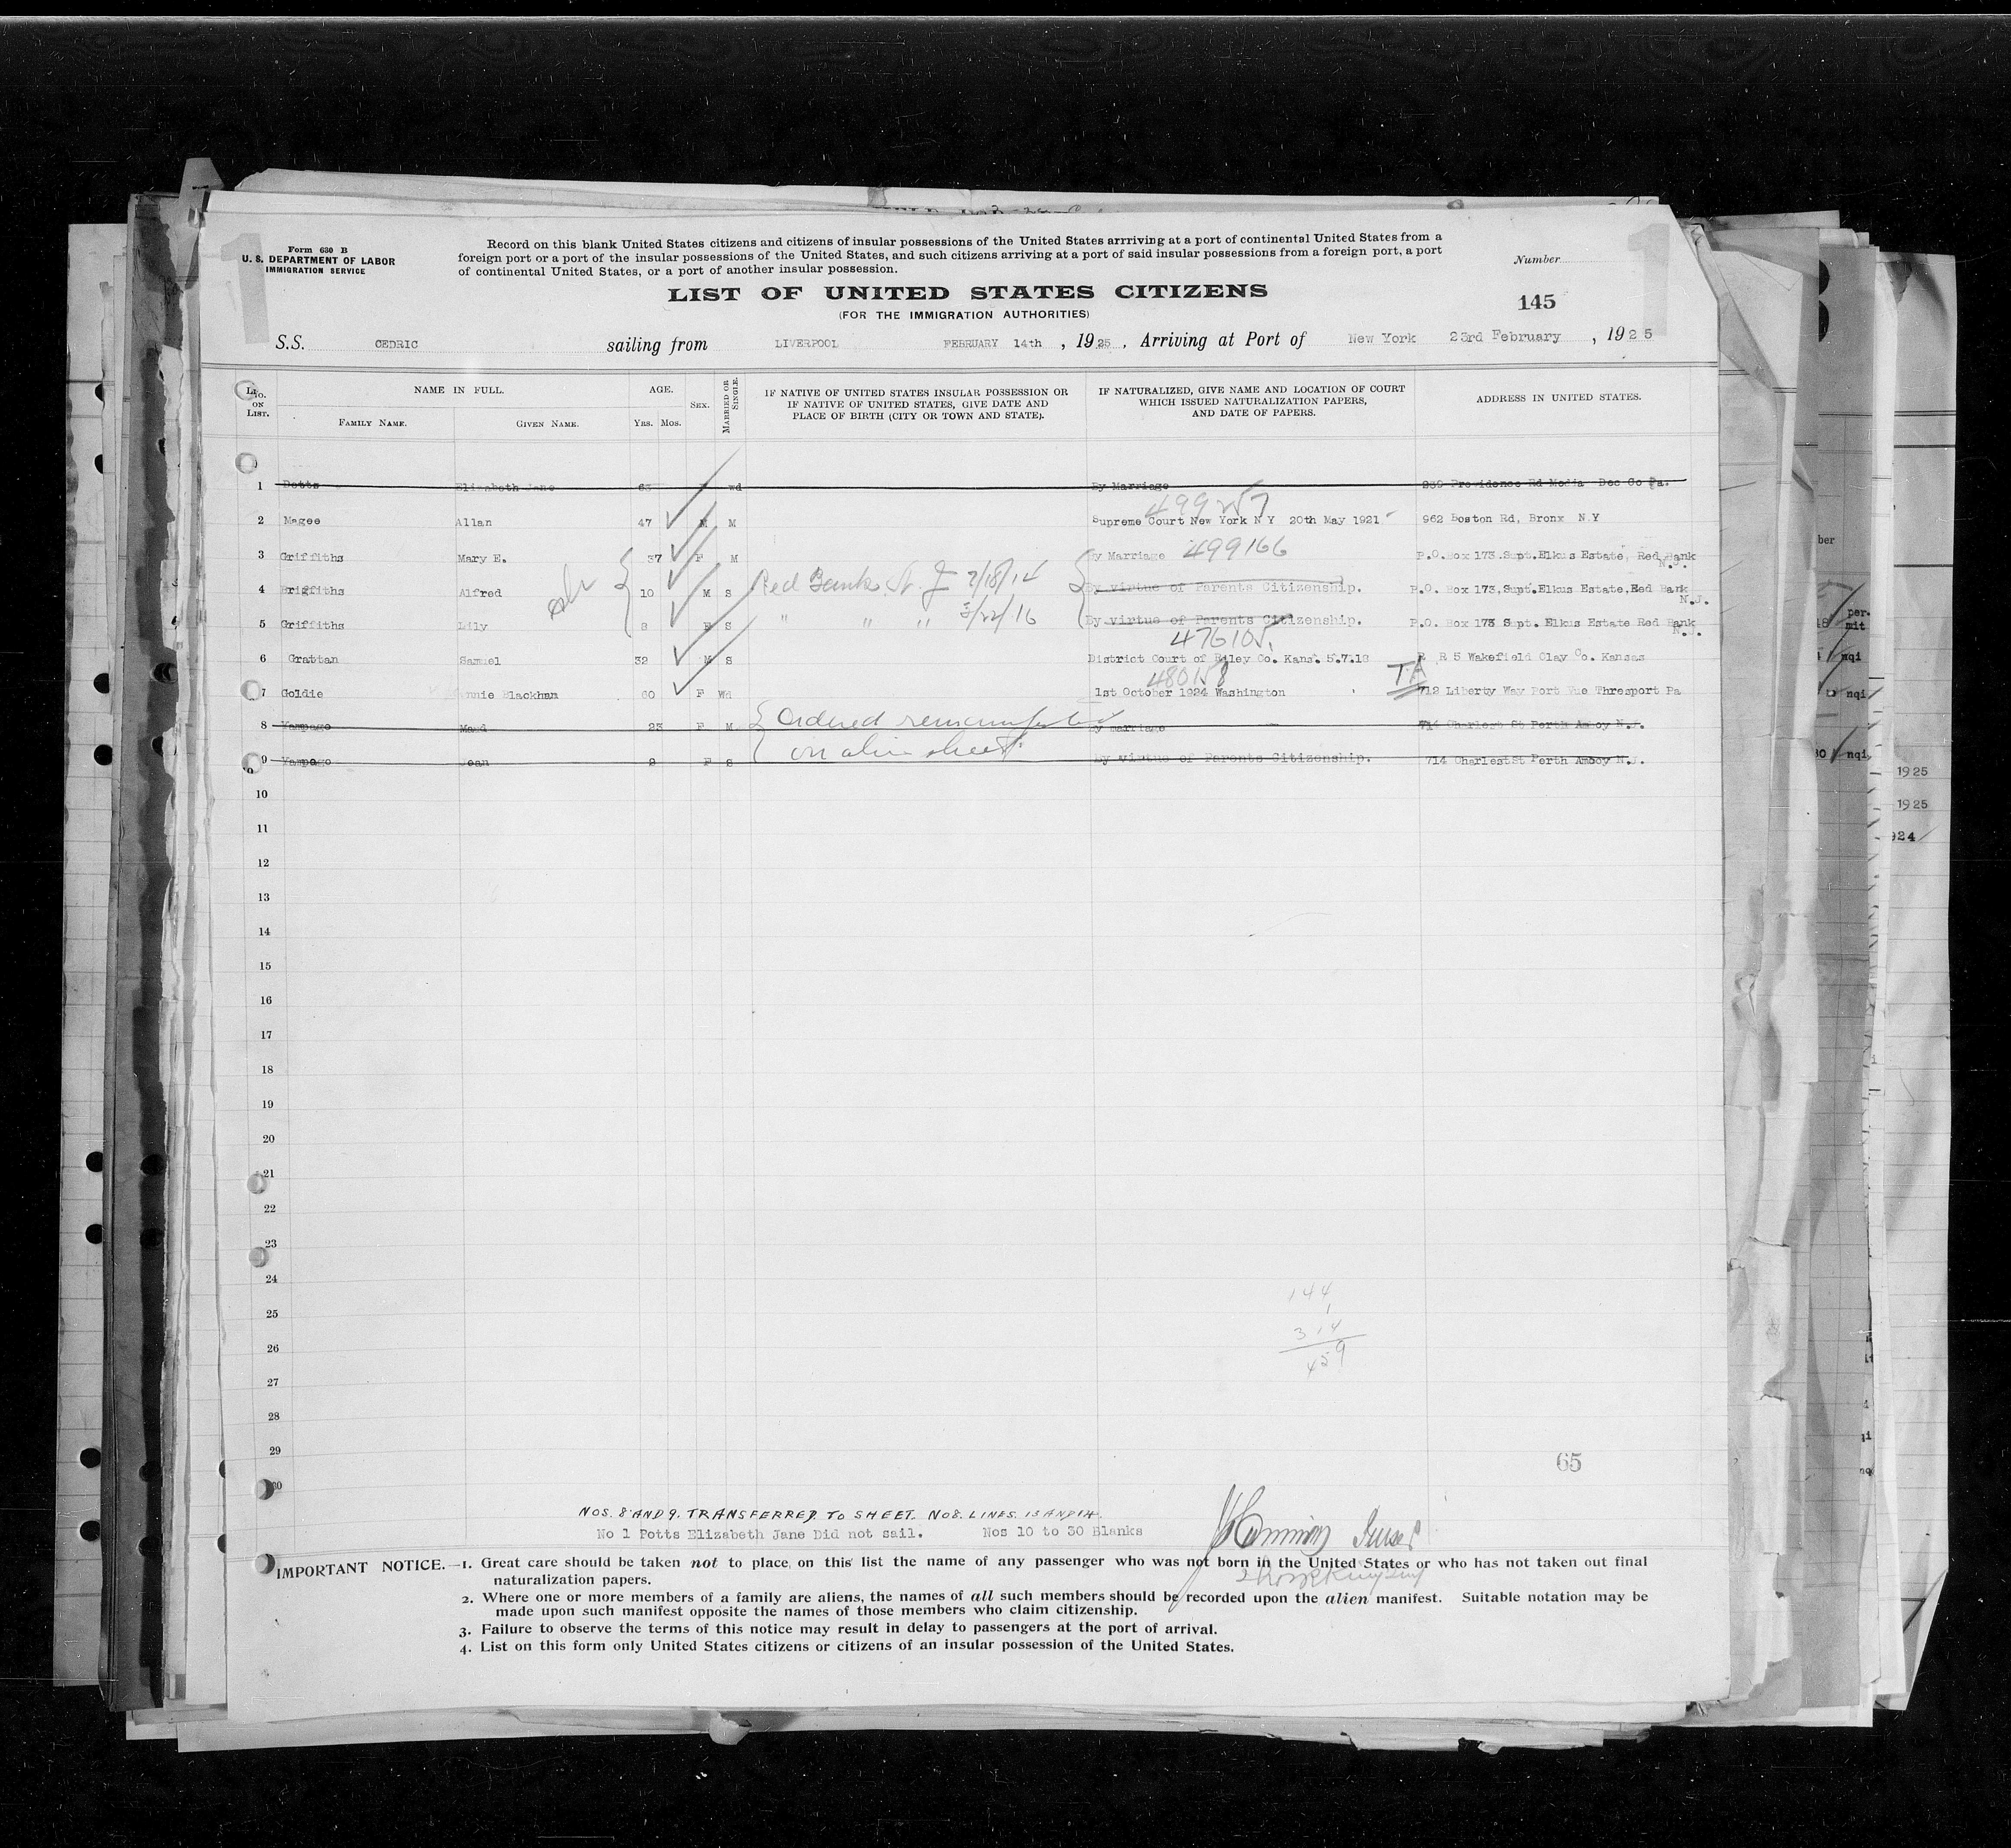 Form 630 B
U. S. DEPARTMENT OF LABOR
IMMIGRATION SERVICE
Record on this blank United States citizens and citizens of insular possessions of the United States arrriving at a port of continental United States from a
foreign port or a port of the insular possessions of the United States, and such citizens arriving at a port of said insular possessions from a foreign port, a port
of continental United States, or a port of another insular possession.
Number
145
LIST OF UNITED STATES CITIZENS
(FOR THE IMMIGRATION AUTHORITIES)
S.S. CEDRIC sailing from LIVERPOOL FEBRUARY 14th , 1925 , Arriving at Port of New York 23rd February , 1925
No. ON LIST. NAME IN FULL. AGE. SEX. MARRIED OR SINGLE. IF NATIVE OF UNITED STATES INSULAR POSSESSION OR IF NATIVE OF UNITED STATES, GIVE DATE AND PLACE OF BIRTH (CITY OR TOWN AND STATE). IF NATURALIZED, GIVE NAME AND LOCATION OF COURT WHICH ISSUED NATURALIZATION PAPERS, AND DATE OF PAPERS. ADDRESS IN UNITED STATES.
FAMILY NAME. GIVEN NAME. YRS. MOS.
1 Elizabeth Jane 63 wd By Marriage 239 Providence Rd Media Co Pa.
499257
2 Magee Allan 47 M M Supreme Court New York N Y 20th May 1921 962 Boston Rd, Bronx N.Y
3 Griffiths Mary E. 37 F M By Marriage 499166 P.O. Box 173.Supt.Elkus Estate, Red Bank N.J.
4 Griffiths Alfred 10 M S Red Bank N. J 2/18/14 By virtue of Parents Citizenship. P.O. Box 173,Supt.Elkus Estate,Red Bank N.J.
5 Griffiths Lily 8 F S " " " 3/22/16 By virtue of Parents Citizenship. P.O. Box 173 Supt. Elkus Estate Red Bank N.J.
476105
6 Grattan Samuel 32 M S District Court of Riley Co. Kans. 5.7.18 R R 5 Wakefield Clay Co. Kansas
480158
7 Goldie Annie Blackham 60 F Wd 1st October 1924 Washington 712 Liberty Way Port Vue Thresport Pa
8 Vampago Maud 23 F M Ordered remanifested By marriage 714 Charlest St Perth Amboy N.J.
on alien sheet
9 Vampago Jean 2 F S By virtue of Parents Citizenship. 714 CharlestSt Perth Amboy N.J.
10
11
12
13
14
15
16
17
18
19
20
21
22
23
24
25
26
27
28
29
30
144
1
314
459
65
NOS. 8 AND 9. TRANSFERRED TO SHEET NO8. LINES 13 AND 14.
No 1 Potts Elizabeth Jane Did not sail. Nos 10 to 30 Blanks
IMPORTANT NOTICE.—1. Great care should be taken not to place on this list the name of any passenger who was not born in the United States or who has not taken out final
naturalization papers.
2. Where one or more members of a family are aliens, the names of all such members should be recorded upon the alien manifest. Suitable notation may be
made upon such manifest opposite the names of those members who claim citizenship.
3. Failure to observe the terms of this notice may result in delay to passengers at the port of arrival.
4. List on this form only United States citizens or citizens of an insular possession of the United States.
ber
per-
mit
nqi
nqi
nqi
1925
1925
924